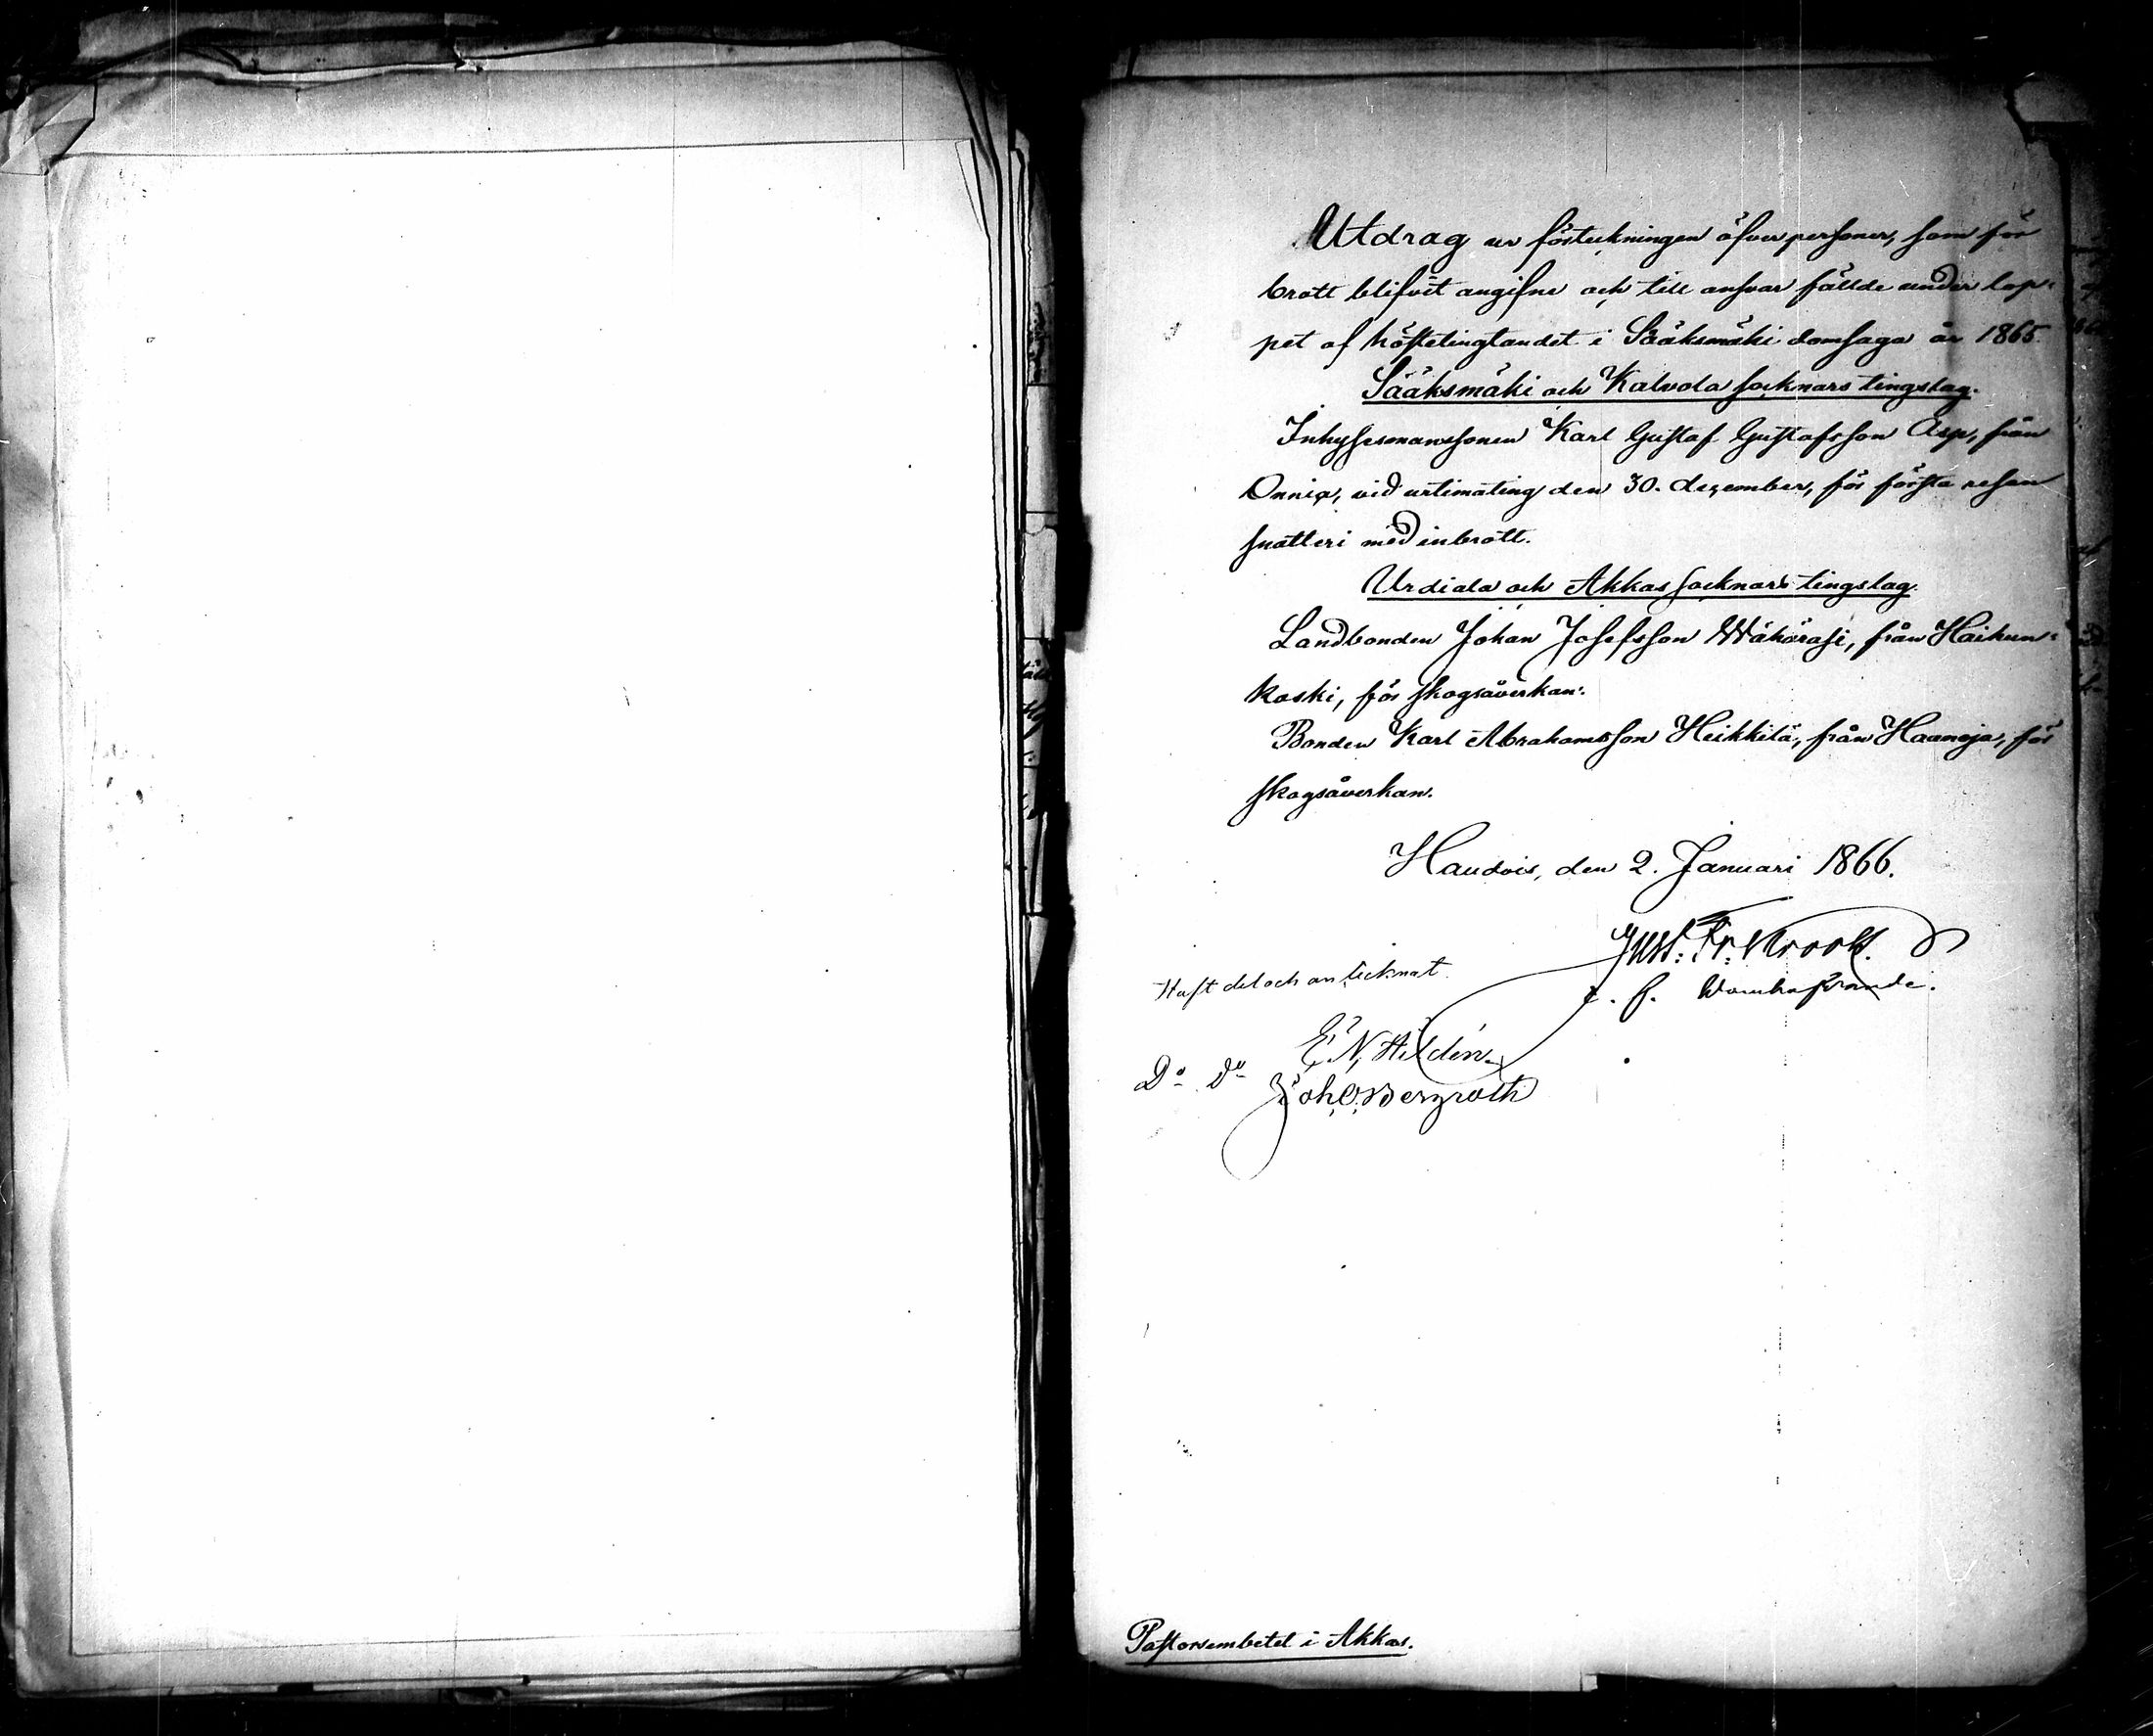 Utdrag ur förteckningen öfver personer, som för
brott blifvit angifne och till ansvar fällde under lop-
pet af hösttetingtandet i Sääksmäki domsaga år 1865.
Sääksmäki och Kalvola socknars tingslag.
Inhysesmanssonen Karl Gustaf Gustafsson Asp, från
Onnia, vid urtimating den 30. dezember, för första resan
snatteri med inbrott.
Urdiala och Akkas socknars tingslag.
Landbonden Johan Josefsson Wähörasi, från Haihun-
koski, för skogsåverkan.
Bonden Karl Abrahamsson Heikkilä, från Haanoja, för
skogsåverkan.
Haudois, den 2. Januari 1866.
Gust. Fr. Krook.
e. f. Domhafvande.
Haft del och antecknat.
E. N. Hildén.
Do Do Joh. O. Bergroth
Pastorsembetet i Akkas.